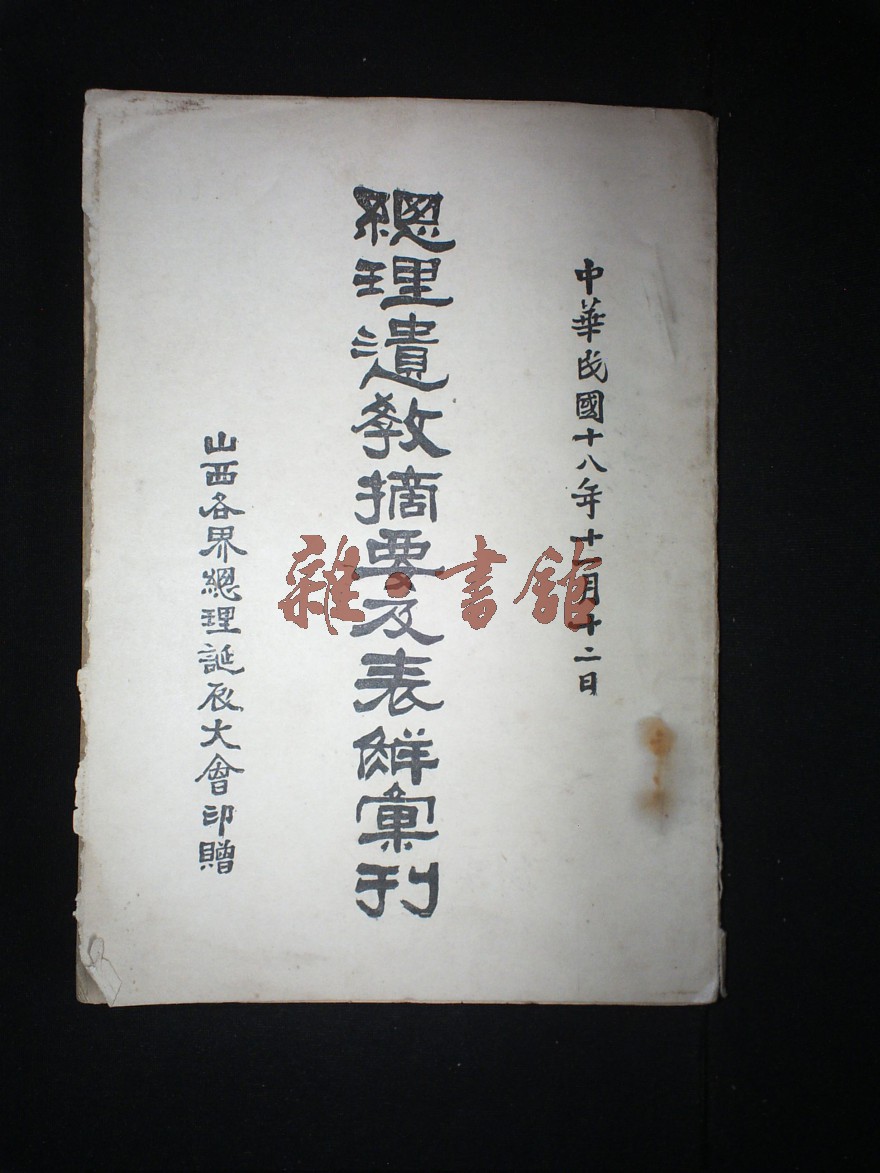 中華民國十八年十一月十二日
總理遺教摘要及表解彙刊
山西各界總理誕辰大會印贈
雜·書館